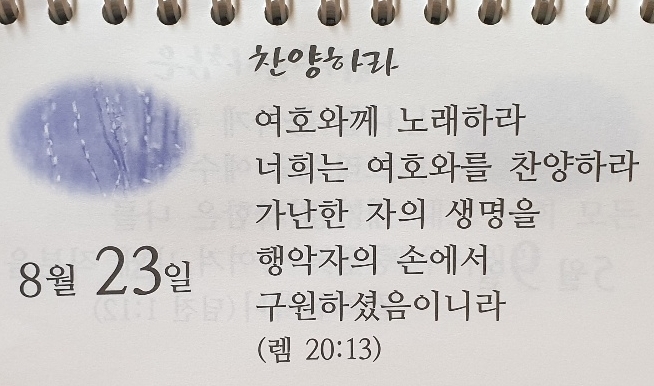 찬양하라
여호와께 노래하라
너희는 여호와를 찬양하라
가난한 자의 생명을
행악자의 손에서
구원하셨음이니라
(렘 20:13)
8월 23일